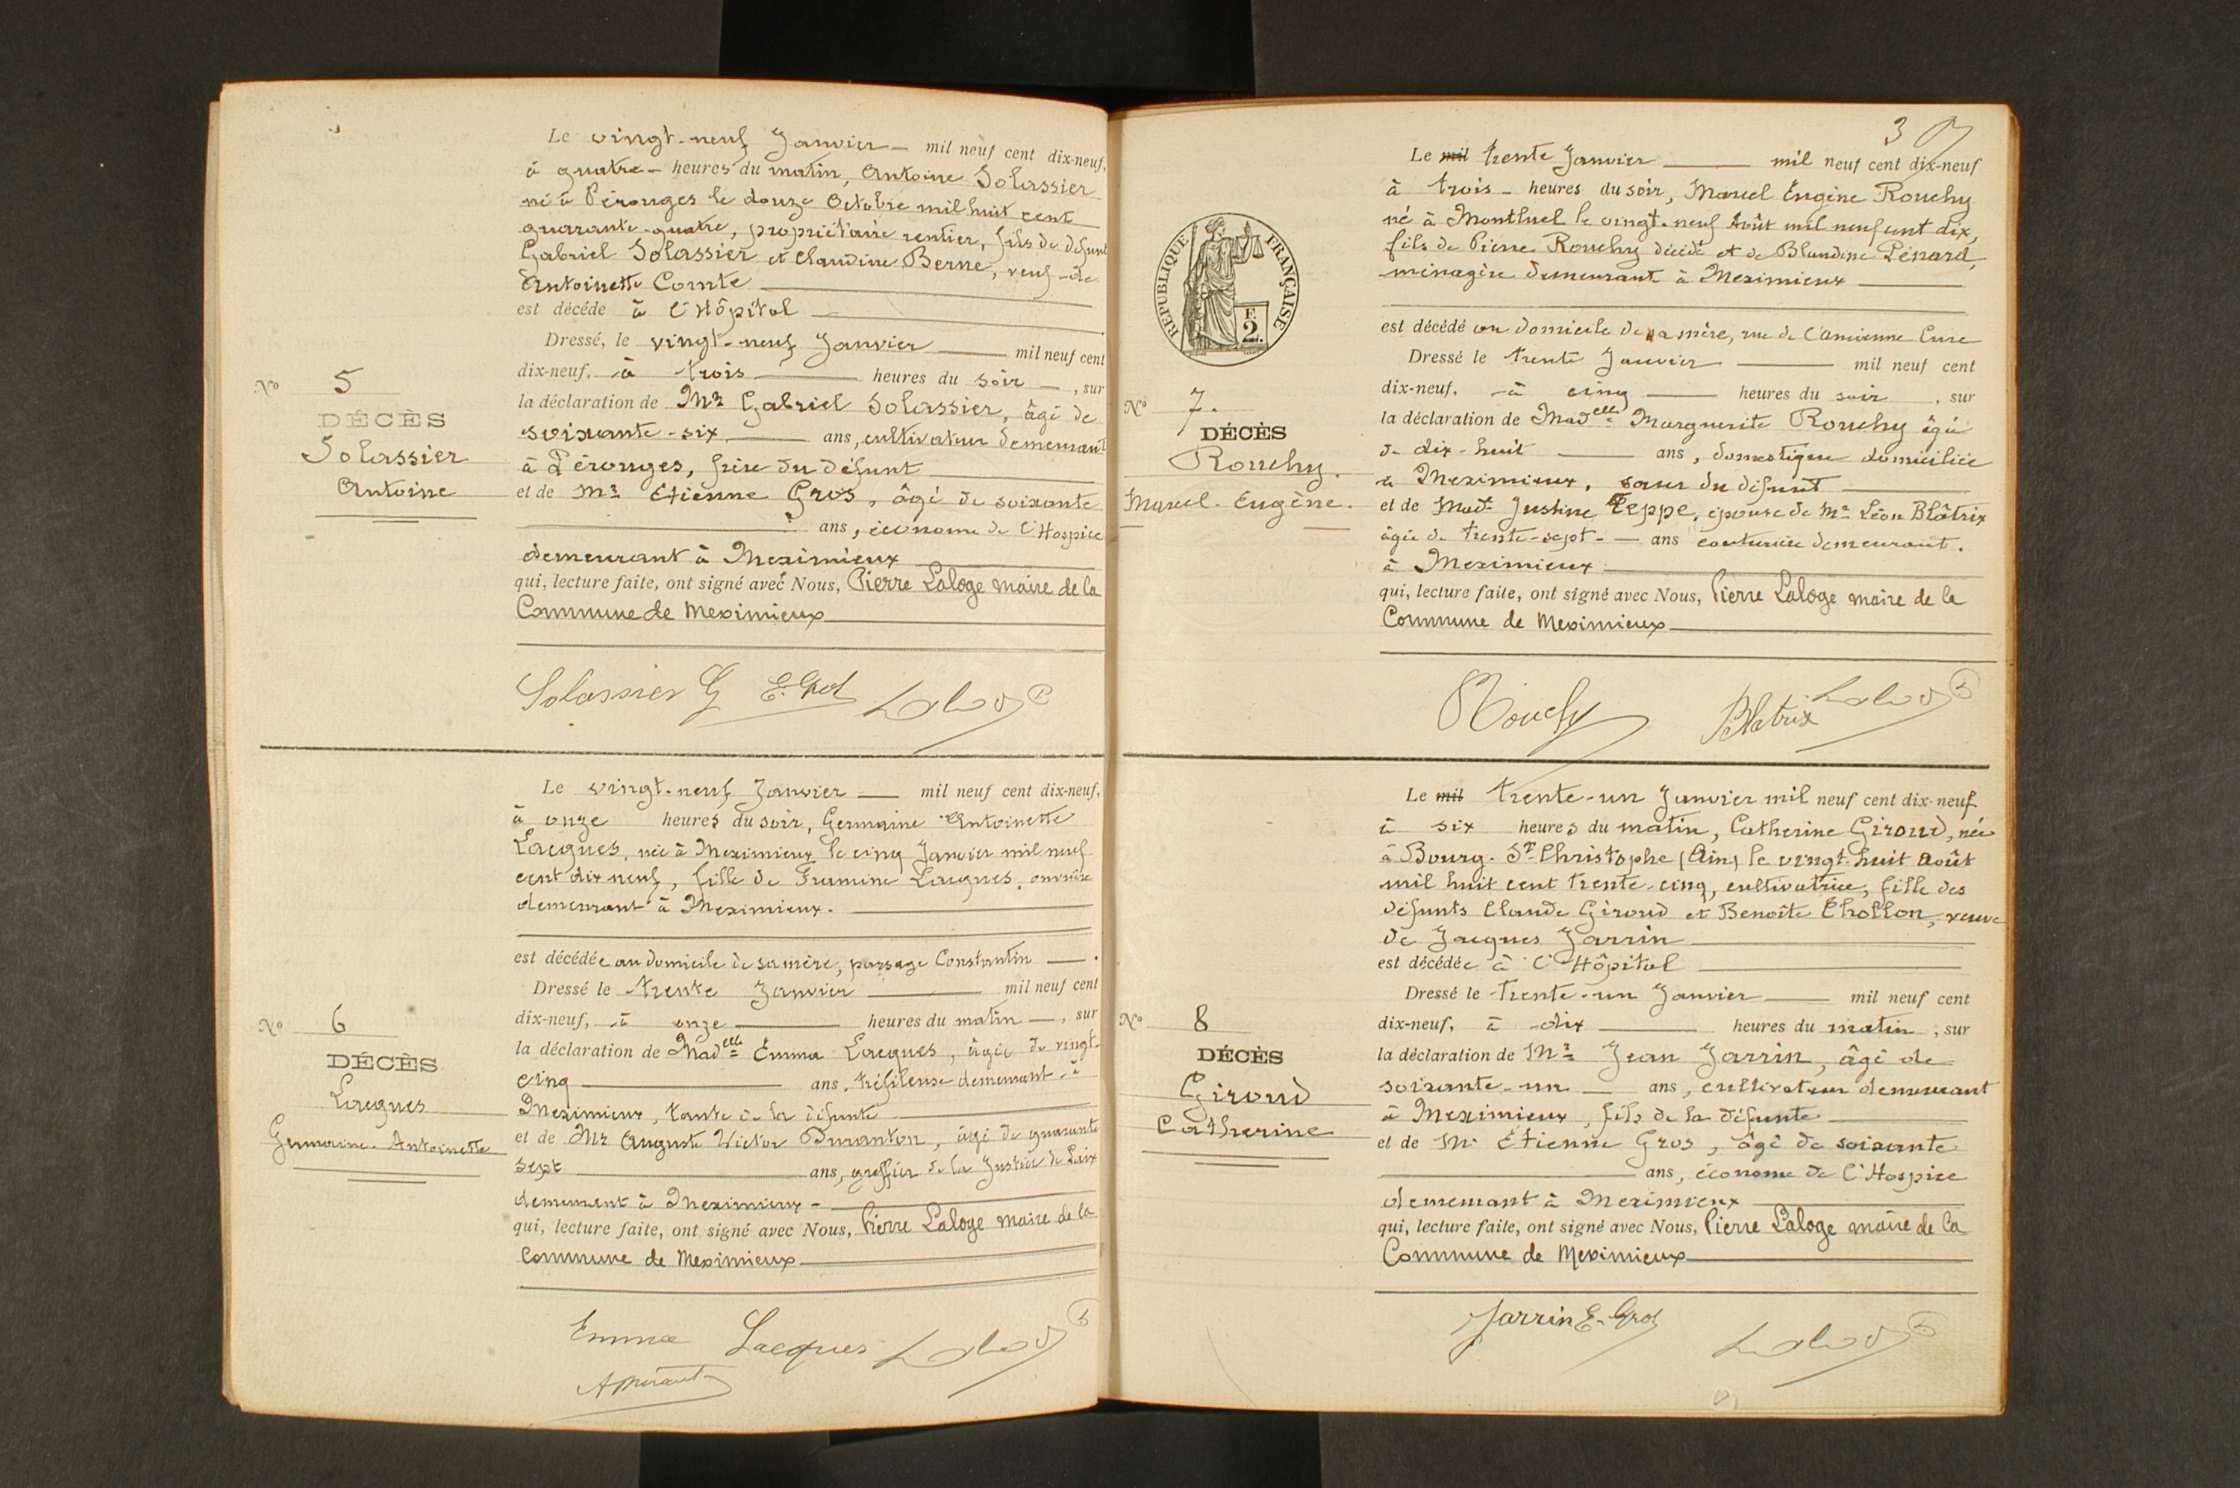 Le vingt-neuf Janvier mil neuf cent dix-neuf,
à quatre heures du matin, Antoine Solassier
né à Pérouges le douze Octobre mil huit cent
quarante-quatre, propriétaire rentier, fils de défunt
Gabriel Solassier et Claudine Berne, veuf de
Antoinette Comte
est décédé à l'Hôpital
Dressé, le vingt-neuf Janvier mil neuf cent
dix-neuf, à trois heures du soir, sur
la déclaration de Mr Gabriel Solassier, âgé de
soixante-six ans, cultivateur demeurant
à Pérouges, frère du défunt
et de Mr Etienne Gros, âgé de soixante
ans, économe de l'Hospice
demeurant à Meximieux
qui, lecture faite, ont signé avec Nous, Pierre Laloge maire de la
Commune de Meximieux
No 5
DÉCÈS
Solassier
Antoine
Solassier G E. Gros Laloge
Le vingt-neuf Janvier mil neuf cent dix-neuf,
à onze heures du soir, Germaine Antoinette
Lacques, née à Meximieux le cinq Janvier mil neuf
cent dix neuf, fille de Framine Lacques, ouvrière
demeurant à Meximieux.
est décédée au domicile de sa mère, passage Constantin
Dressé le trente Janvier mil neuf cent
dix-neuf, à onze heures du matin, sur
la déclaration de Madelle Emma Lacques, âgée de vingt-
cinq ans, tréfileuse demeurant à
Meximieux, tante de la défunte
et de Mr Auguste Victor Duranton, âgé de quarante
sept ans, greffier de la Justice de Paix
demeurant à Meximieux
qui, lecture faite, ont signé avec Nous, Pierre Laloge maire de la
Commune de Meximieux
No 6
DÉCÈS
Lacques
Germaine-Antoinette
Emma Lacques Laloge
3
Le mil trente Janvier mil neuf cent dix-neuf
à trois heures du soir, Marcel Eugène Rouchy
né à Montluel le vingt-neuf Août mil neuf cent dix,
fils de Pierre Rouchy décédé et de Blandine Pénard,
ménagère demeurant à Meximieux
est décédé au domicile de sa mère, rue de l'Ancienne Cure
Dressé le trente Janvier mil neuf cent
dix-neuf, à cinq heures du soir, sur
la déclaration de Madelle Marguerite Rouchy âgée
de dix-huit ans, domestique domiciliée
à Meximieux, sœur du défunt
et de Made Justine Teppe, épouse de Mr Léon Blâtrix
âgée de trente-sept ans couturière demeurant.
à Meximieux
qui, lecture faite, ont signé avec Nous, Pierre Laloge maire de la
Commune de Meximieux
RÉPUBLIQUE FRANÇAISE
F.
2.
No 7.
DÉCÈS
Rouchy.
Marcel-Eugène.
Rouchy Blatrix Laloge
Le mil trente-un Janvier mil neuf cent dix-neuf
à six heures du matin, Catherine Giroud, née
à Bourg-St-Christophe (Ain) le vingt-huit août
mil huit cent trente-cinq, cultivatrice, fille des
défunts Claude Giroud et Benoîte Chollon, veuve
de Jacques Jarrin
est décédée à l'Hôpital
Dressé le trente-un Janvier mil neuf cent
dix-neuf, à dix heures du matin, sur
la déclaration de Mr Jean Jarrin, âgé de
soixante-un ans, cultivateur demeurant
à Meximieux, fils de la défunte
et de Mr Etienne Gros, âgé de soixante
ans, économe de l'Hospice
demeurant à Meximieux
qui, lecture faite, ont signé avec Nous, Pierre Laloge maire de la
Commune de Meximieux
No 8
DÉCÈS
Giroud
Catherine
Jarrin E. Gros Laloge